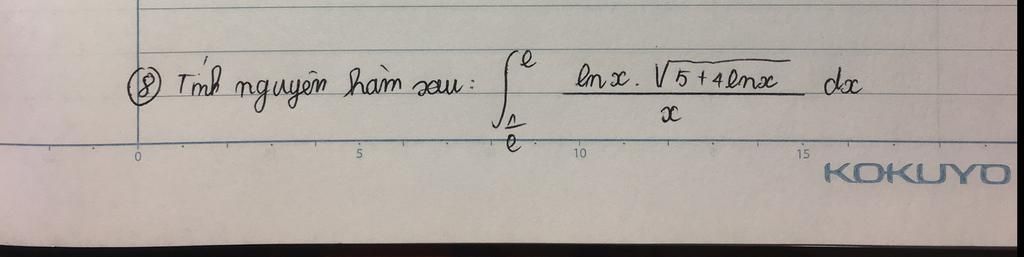 ⑧ Tính nguyên hàm sau: ∫_{1/e}^{e} (ln x . √(5 + 4 ln x))/x dx
0 5 10 15
KOKUYO